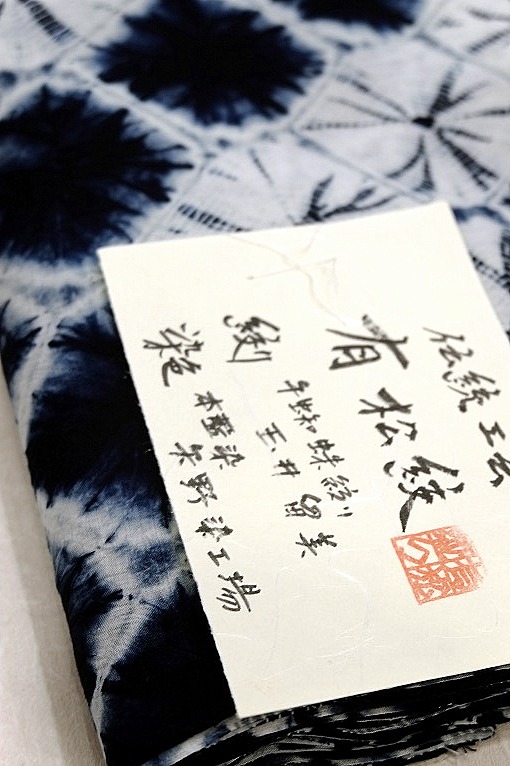 伝統工芸
有松絞
絞り
手蜘蛛絞り
玉井留美
染色
本藍染
久野染工場